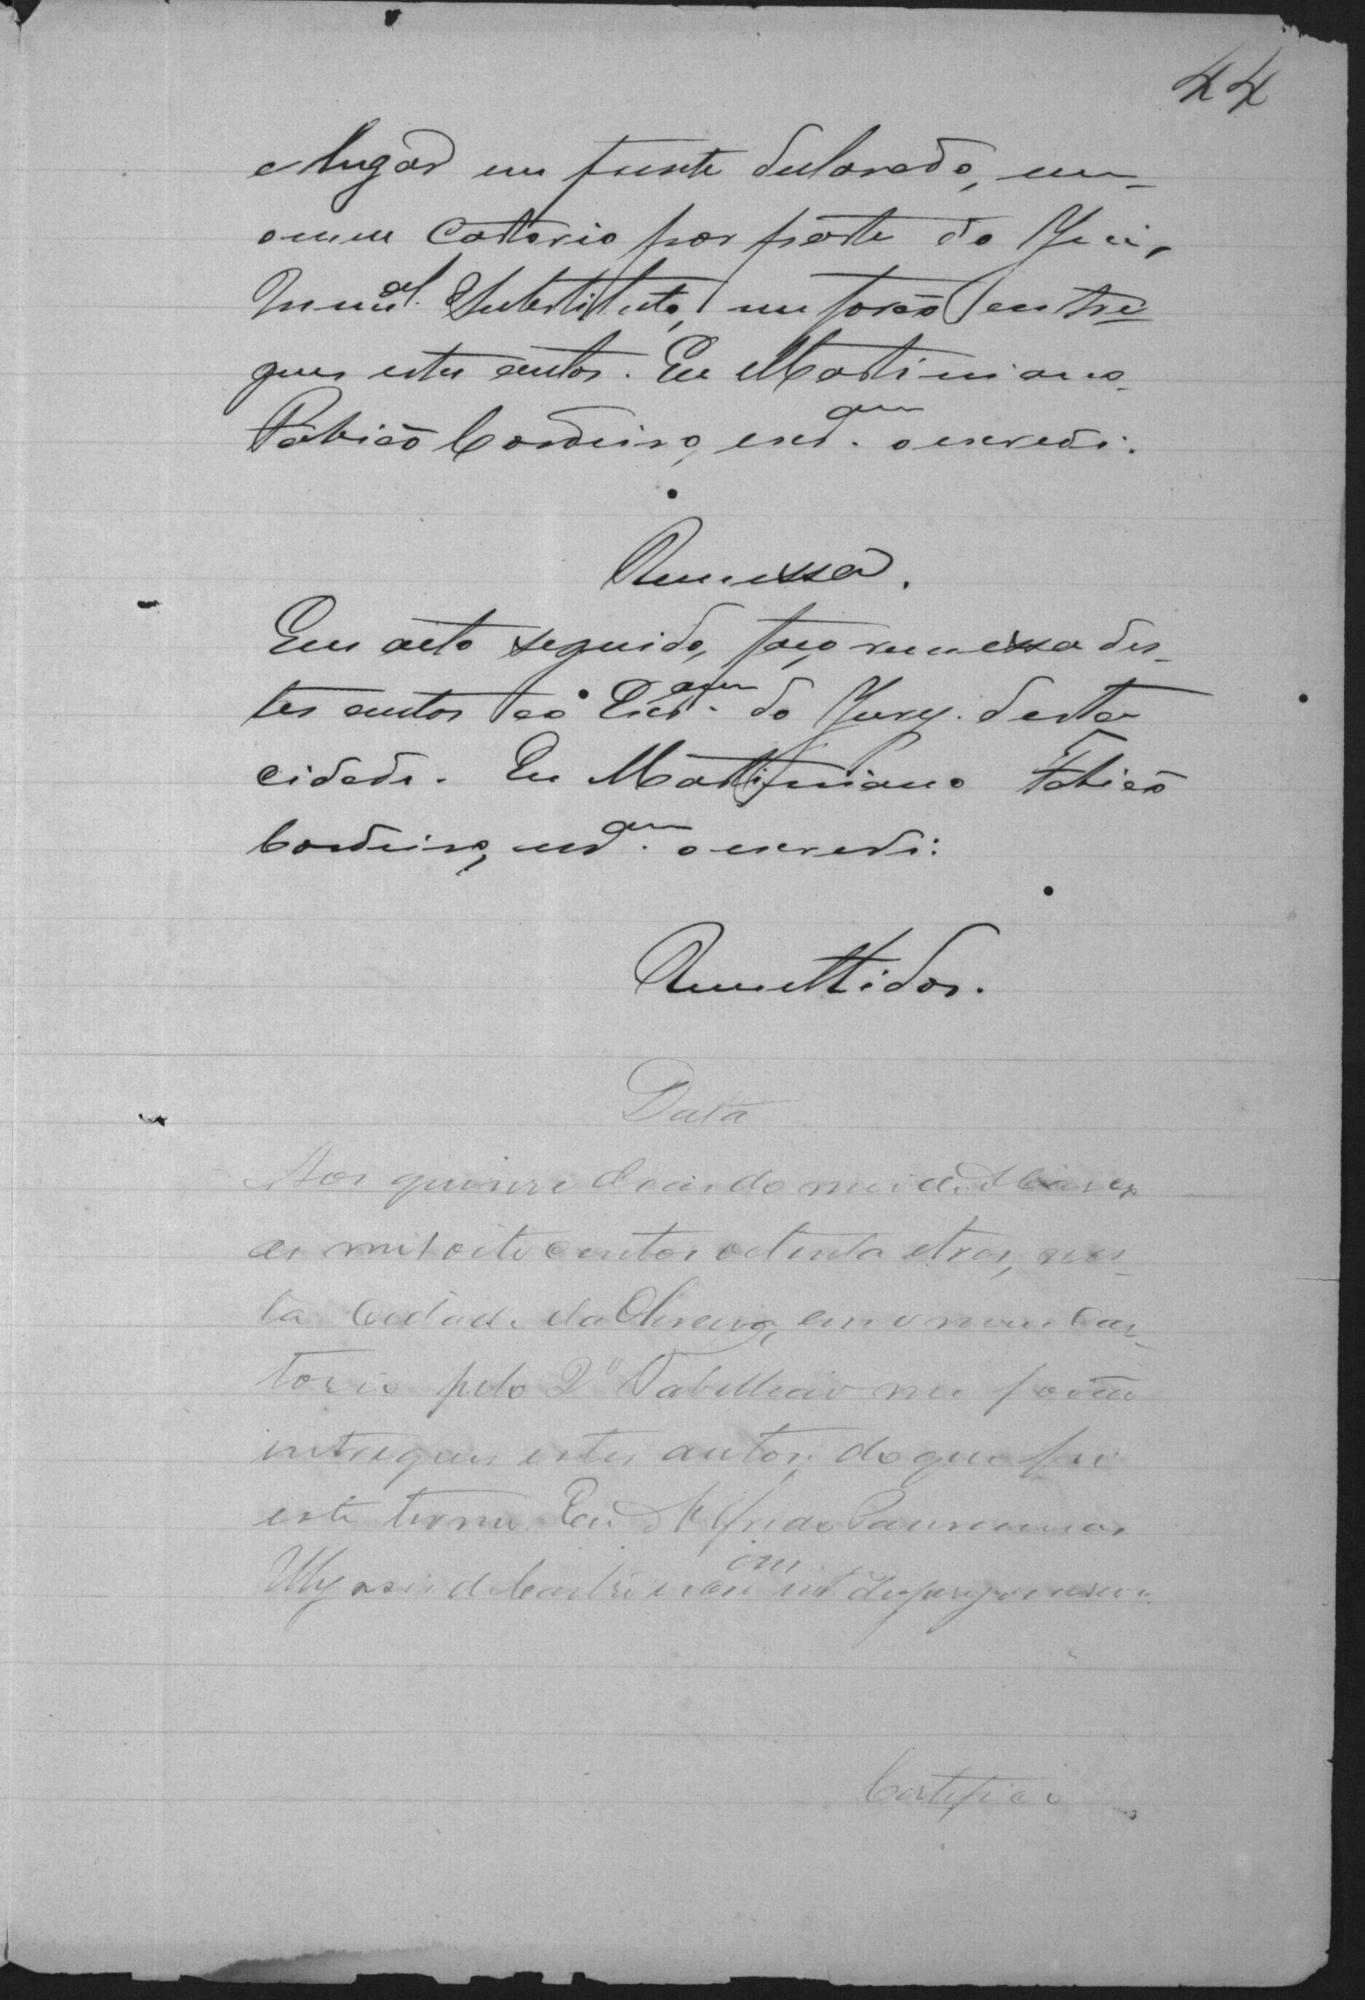 44
e lugar em frente declarado, em
o meu Cartorio por parte do Juiz
Mun.al Substituto, me forão entre
gues estes autos. Eu Martiniano
Fabião Cordeiro, escr.am o escrevi.
Remessa.
Em acto seguido, faço remessa des-
tes autos ao Escr.am do Jury desta
cidade. Eu Martiniano Fabião
Cordeiro, escr.am o escrevi:
Remettidos.
Data
Aos quinze dias do mez de Março
de mil oito centos oitenta e tres, nes-
ta Cidade da Oliveira, em o meu Car-
torio pelo 2º Tabellião me forão
intregues estes autos; do que fiz
este termo. Eu Alfredo
Ulysses de Castro
Certifico